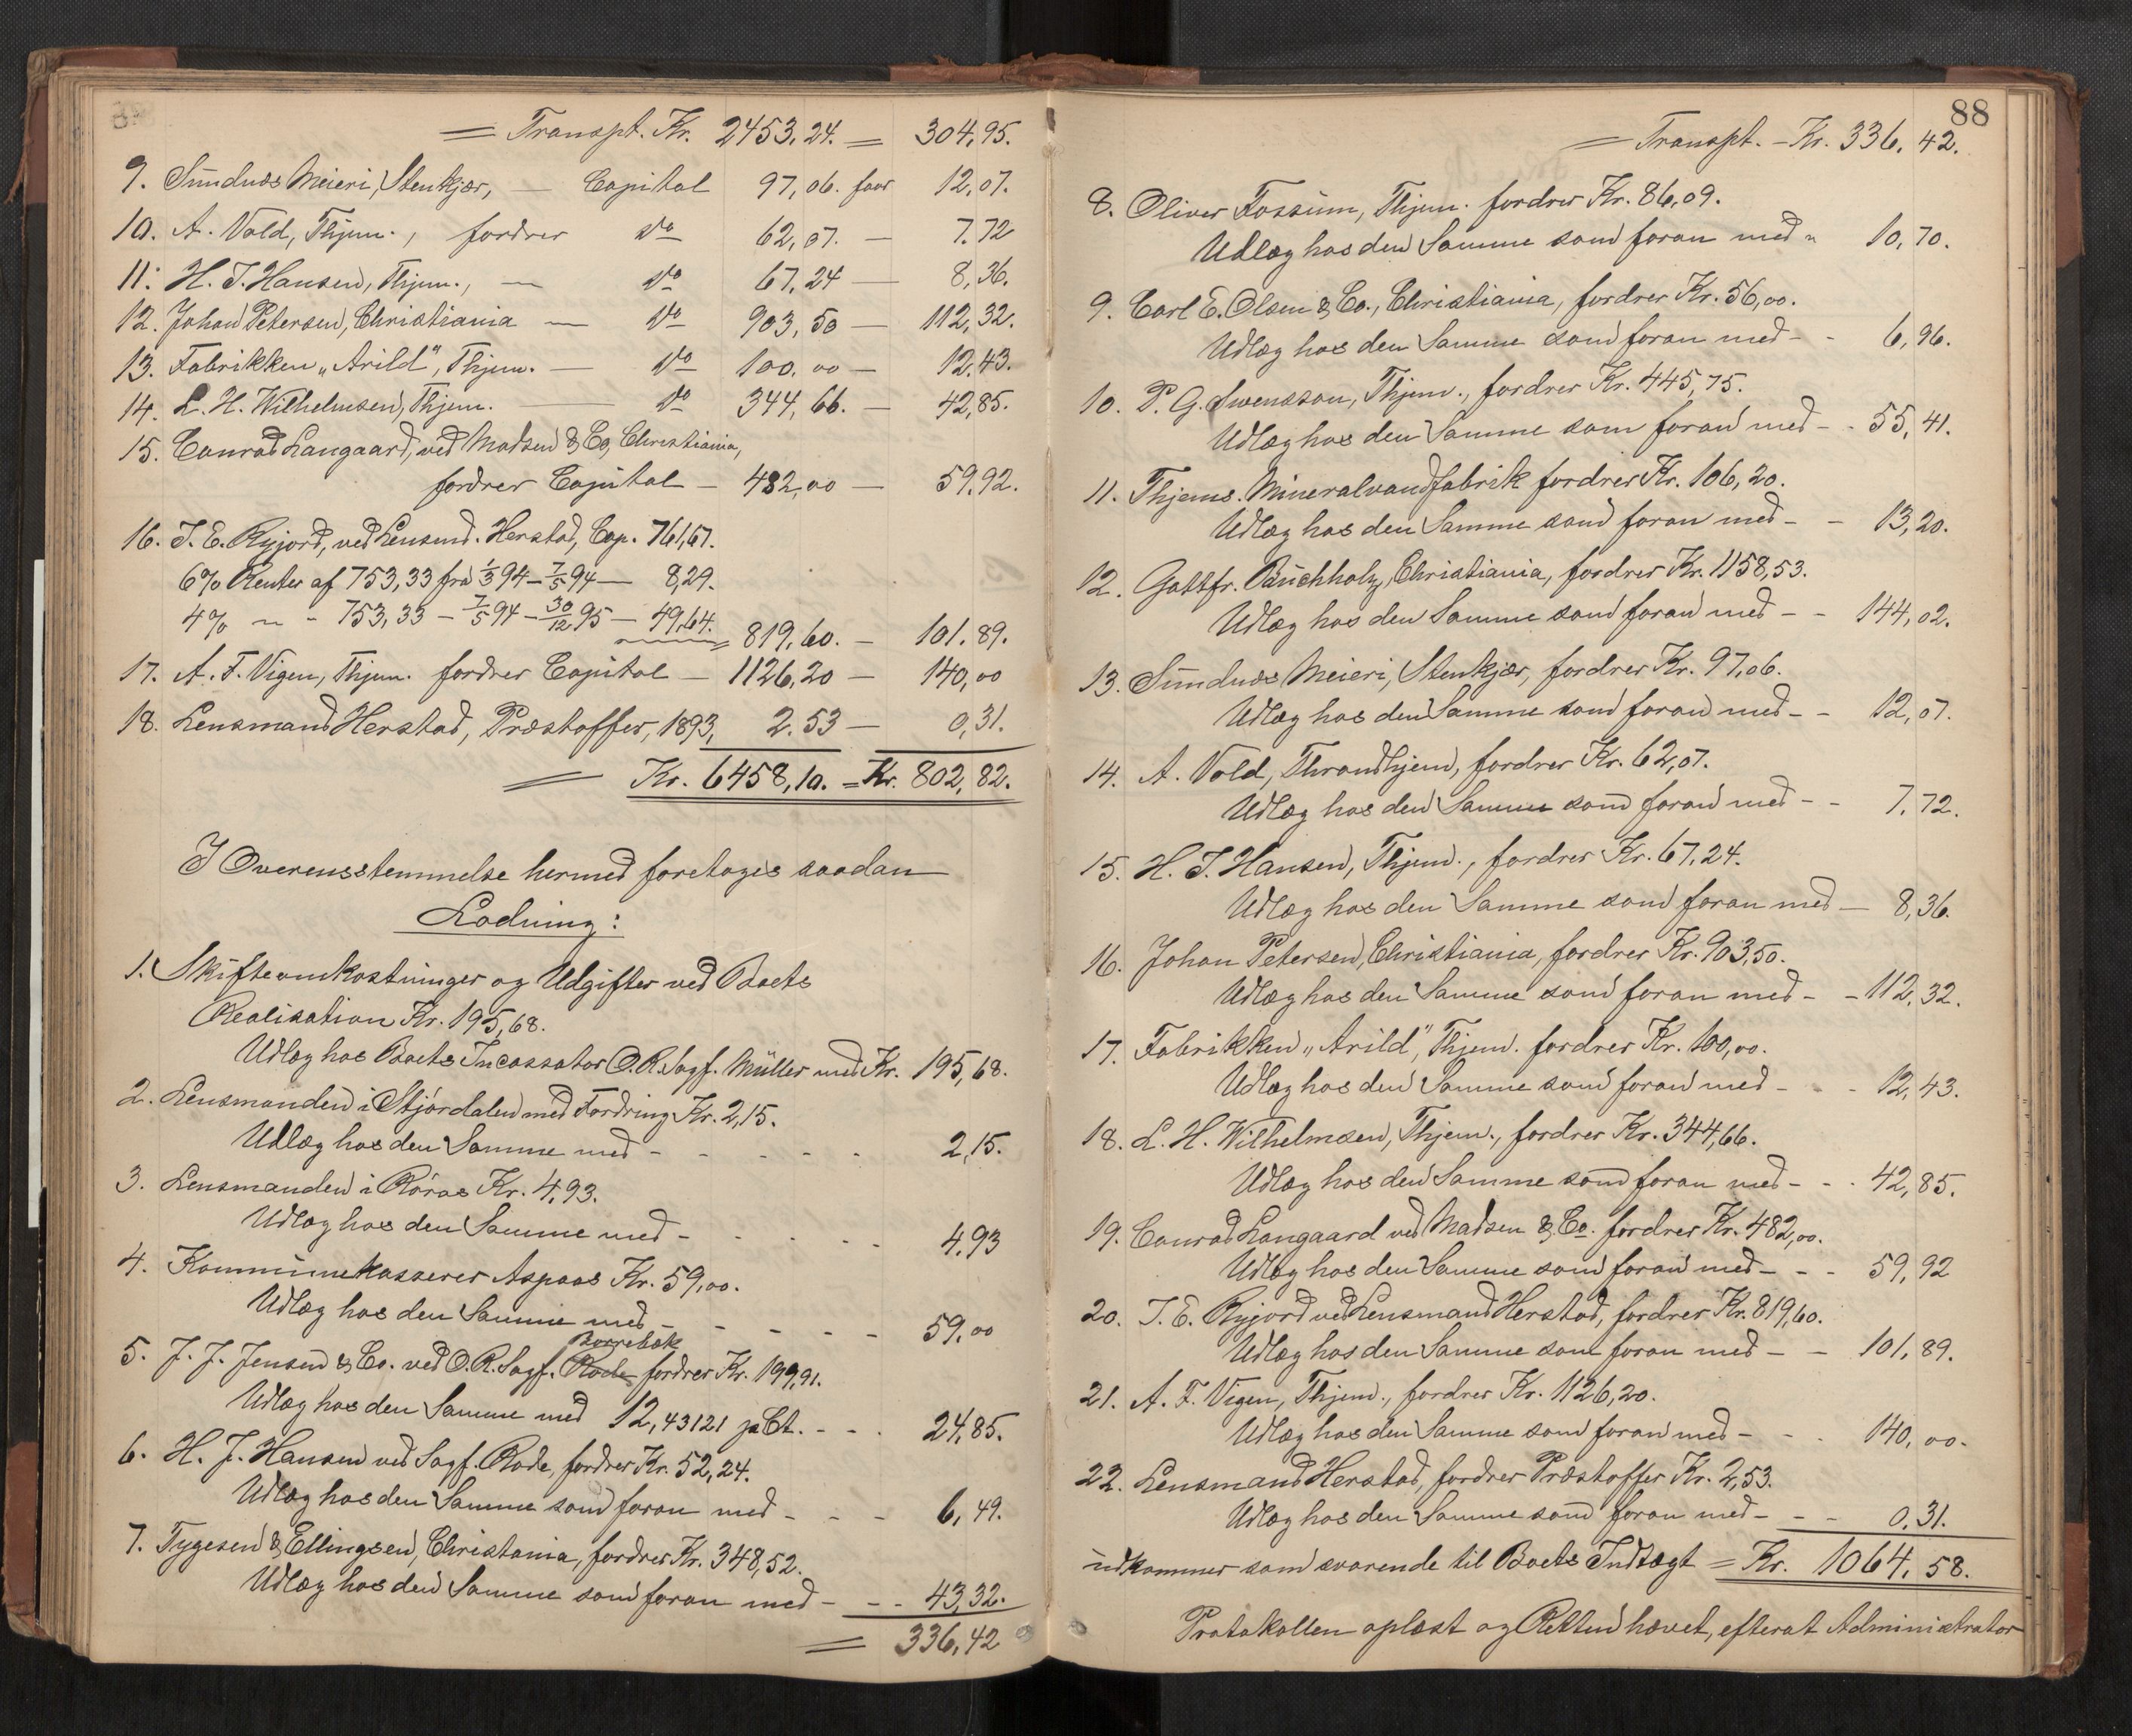 = Transpt. Kr. 2453,24. = 304,95.
9. Sundnæs Meieri, Stenkjær, — Capital 97,06. faar 12,07.
10. A. Vold, Thjem., fordrer do 62,07. — 7.72
11. H. J. Hansen, Thjem., — do 67,24 — 8,36.
12. Johan Petersen, Christiania — do 903,50 — 112,32.
13. Fabrikken „Arild", Thjem. — do 100,00 — 12,43.
14. L. H. Wilhelmsen, Thjem. — do 344,66. — 42,85.
15. Conrad Langaard, ved Madsen & Co, Christiania,
fordrer Capital — 482,00 — 59,92.
16. J. E. Ryjord, ved Lensmd. Herstad, Cap. 761,67.
6% Renter af 753,33 fra 1/3 94 - 7/5 94 — 8,29.
4% " - 753,33 — 7/5 94 - 30/12 95 — 49,64. 819,60. — 101.89.
17. A. F. Vigen, Thjem. fordrer Capital — 1126,20 — 140,00
18. Lensmand Herstad, Præstoffer, 1893, 2.53 — 0,31.
= Kr. 6458,10. = Kr. 802,82.
I Overensstemmelse hermed foretoges saadan
Lodning:
1. Skifteomkostninger og Udgifter ved Boets
Realisation Kr. 195,68.
Udlæg hos Boets Incassator O.R.Sagf. Müller med Kr. 195,68.
2. Lensmanden i Stjørdalen med Fordring Kr. 2,15.
Udlæg hos den Samme med - - - - - 2,15.
3. Lensmanden i Røros Kr. 4,93.
Udlæg hos den Samme med - - - - - 4,93
4. Kommunekasserer Aspaas Kr. 59,00.
Udlæg hos den Samme med - - - - - 59,00
Borrebæk
5. J. J. Jensen & Co. ved O.R.Sagf. Rode fordrer Kr. 199,91.
Udlæg hos den Samme med 12,43121 pCt. - - . 24,85.
6. H. J. Hansen ved Sagf. Rode, fordrer Kr. 52,24.
Udlæg hos den Samme som foran med - - - 6,49.
7. Tygesen & Ellingsen, Christania, fordrer Kr. 348,52.
Udlæg hos den Samme som foran med - - - 43,32.
= 336,42
88
= Transpt. - Kr. 336,42.
8. Oliver Fossum, Thjem. fordrer Kr. 86,09.
Udlæg hos den Samme som foran med " 10,70.
9. Carl E. Olsen & Co., Christiania, fordrer Kr. 56,00.
Udlæg hos den Samme som foran med - - 6,96.
10. P. G. Swensson, Thjem., fordrer Kr. 445,75.
Udlæg hos den Samme som foran med - - 55,41.
11. Thjems. Mineralvandfabrik fordrer Kr. 106,20.
Udlæg hos den Samme som foran med - - 13,20.
12. Gottfr. Buchholz, Christiania, fordrer Kr. 1158,53.
Udlæg hos den Samme som foran med - - 144,02.
13. Sundnæs Meieri, Stenkjær, fordrer Kr. 97,06.
Udlæg hos den Samme som foran med - - 12,07.
14. A. Vold, Throndhjem, fordrer Kr. 62,07.
Udlæg hos den Samme som foran med - - 7,72.
15. H. J. Hansen, Thjem., fordrer Kr. 67,24.
Udlæg hos den Samme som foran med — 8,36.
16. Johan Petersen, Christiania, fordrer Kr. 903,50.
Udlæg hos den Samme som foran med - - 112,32.
17. Fabrikken „Arild", Thjem. fordrer Kr. 100,00.
Udlæg hos den Samme som foran med - - - 12,43.
18. L. H. Wilhelmsen, Thjem., fordrer Kr. 344,66.
Udlæg hos den Samme som foran med - - - 42,85.
19. Conrad Langaard ved Madsen & Co. fordrer Kr. 482,00.
Udlæg hos den Samme som foran med - - - 59,92
20. J. E. Ryjord ved Lensmand Herstad, fordrer Kr. 819,60.
Udlæg hos den Samme som foran med - - 101,89.
21. A. F. Vigen, Thjem., fordrer Kr. 1126,20.
Udlæg hos den Samme som foran med - - - 140,00.
22. Lensmand Herstad, fordrer Præstoffer Kr. 2,53.
Udlæg hos den Samme som foran med - - - 0,31.
udkommer som svarende til Boets Indtægt = Kr. 1064,58.
Protokollen oplæst og Retten hævet, efterat Administrator